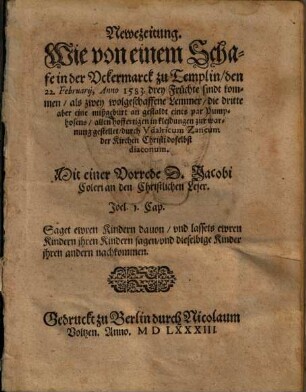 Newezeitung.
Wie von einem Scha-
fe in der Vckermarck zu Templin/den
22. Februarij, Anno 1583. drey Früchte sindt kom-
men / als zwey wolgeschaffene Lemmer/ die dritte
aber eine mißgeburt an gestaldt eines par Pump-
hosens/ allen hoffertigen in kleidungen zur war-
nung gestellet/durch Vdalricum Zancum
der Kirchen Christi doselbst
diaconum.
Mit einer Vorrede D. Jacobi
Coleri an den Christlichen Leser.
Joel. 1. Cap.
Saget ewren Kindern dauon / vnd lassets ewren
Kindern jhren Kindern sagen/vnd dieselbige Kinder
jhren andern nachkommen.
Gedruckt zu Berlin durch Nicolaum
Voltzen. Anno. M D LXXXIII.